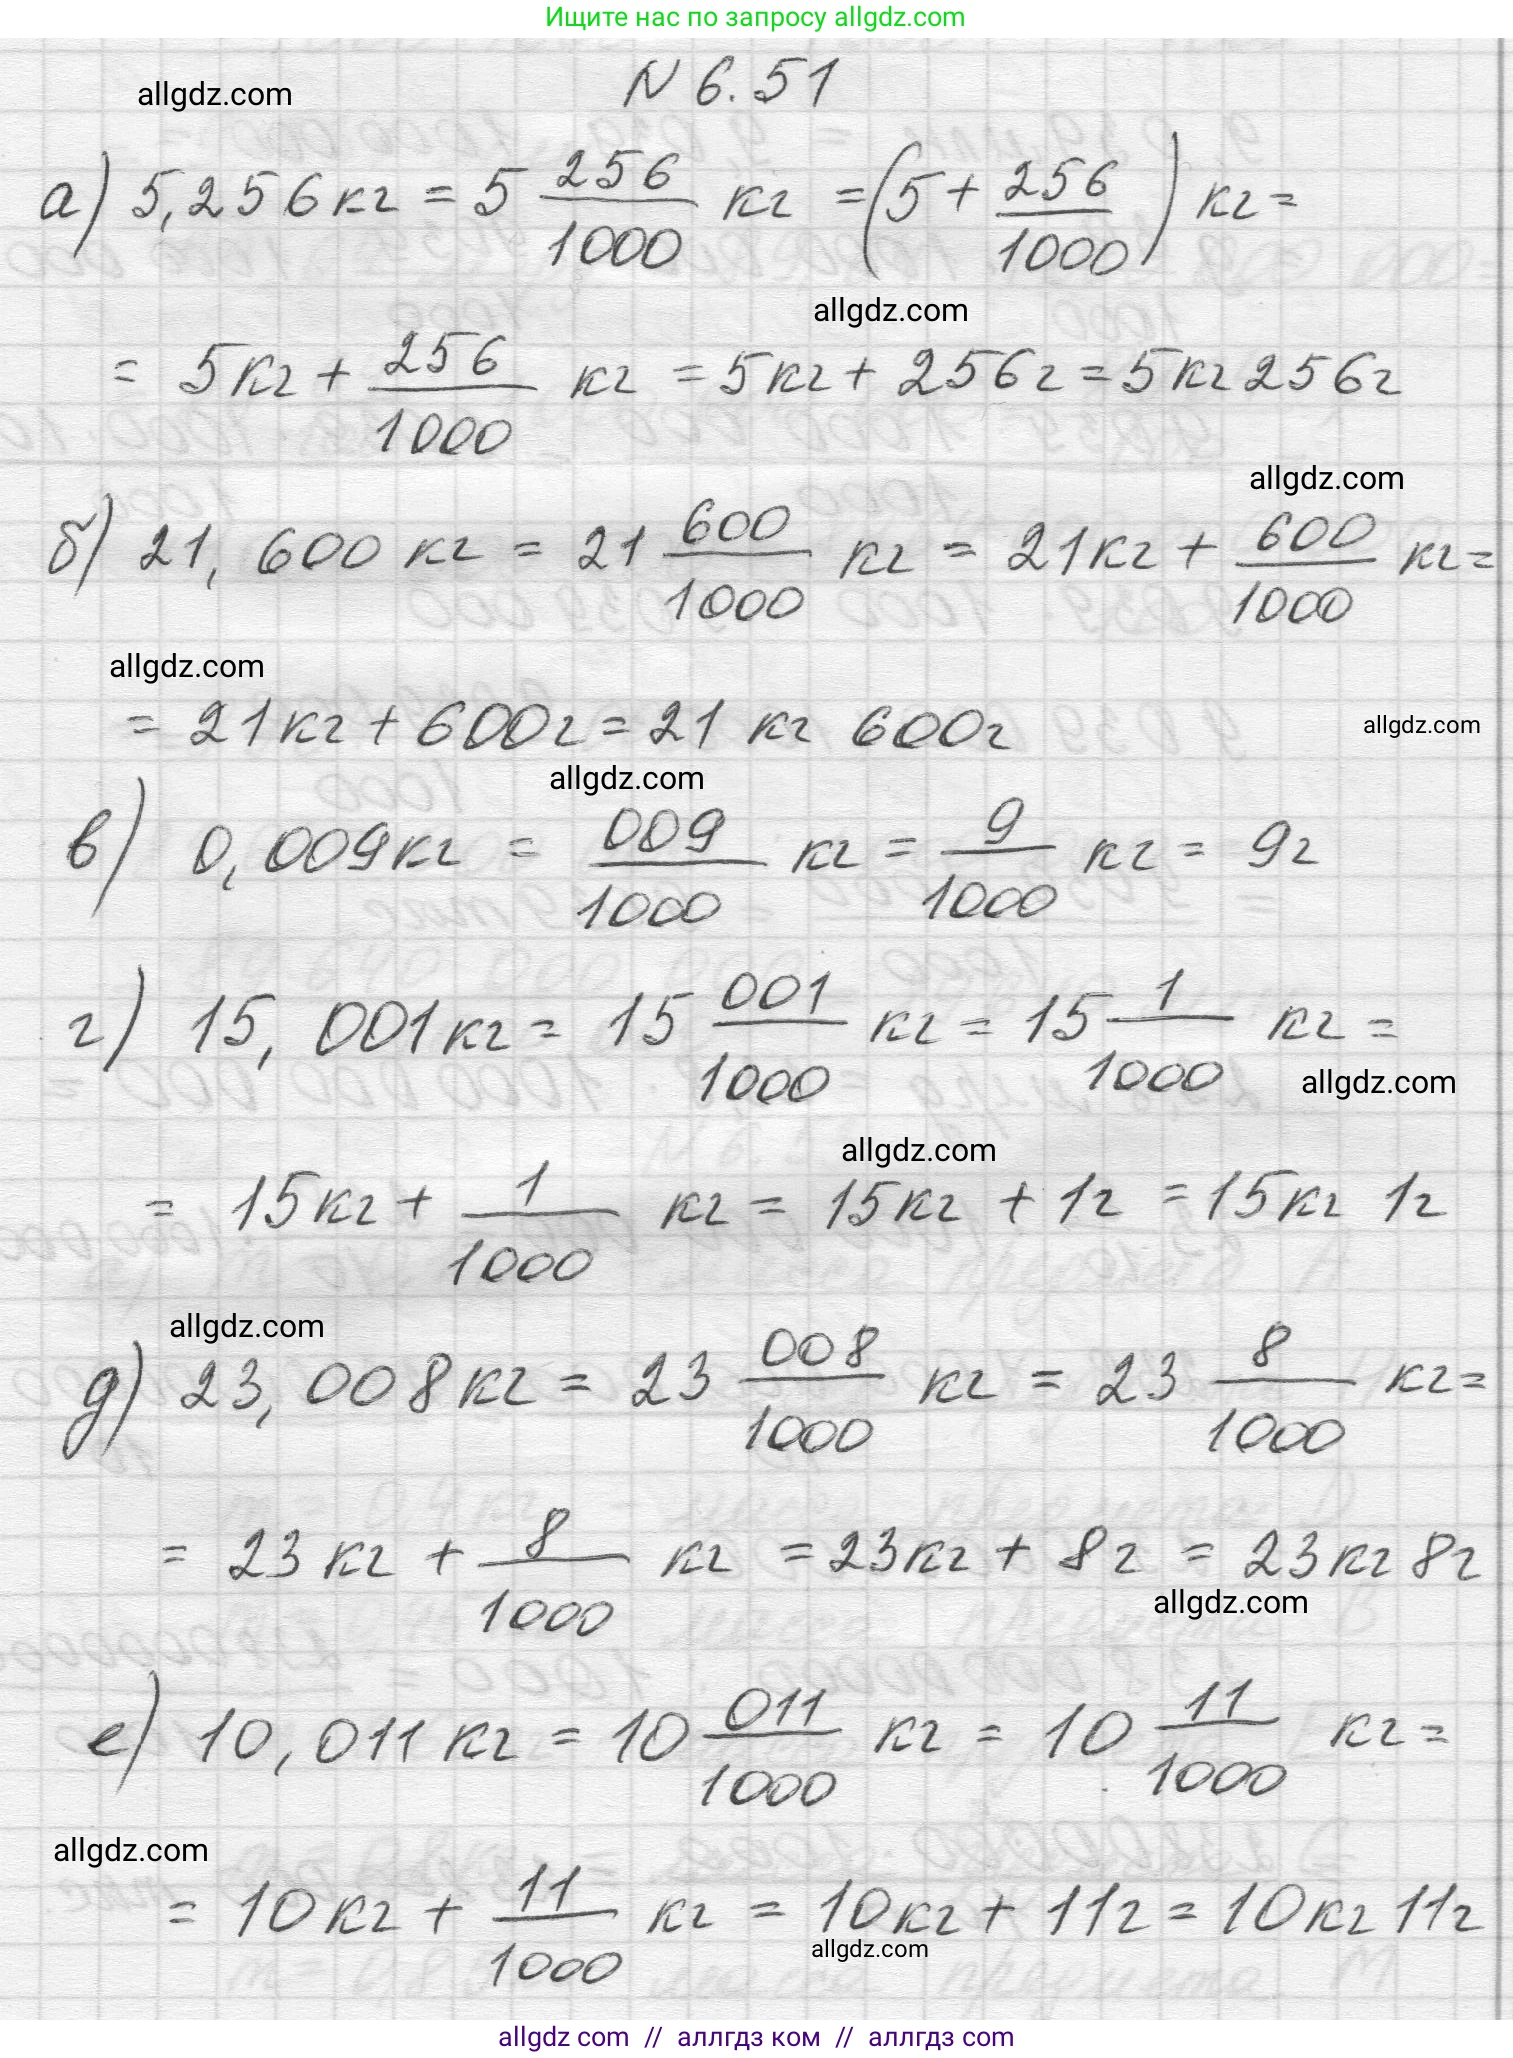 Ищите нас по запросу allgdz.com
allgdz.com
N 6.51
а) 5,256 кг = 5 256/1000 кг = (5 + 256/1000) кг =
allgdz.com
= 5 кг + 256/1000 кг = 5 кг + 256 г = 5 кг 256 г
allgdz.com
б) 21, 600 кг = 21 600/1000 кг = 21 кг + 600/1000 кг =
allgdz.com
= 21 кг + 600 г = 21 кг 600 г
allgdz.com
allgdz.com
в) 0, 009 кг = 009/1000 кг = 9/1000 кг = 9 г
г) 15, 001 кг = 15 001/1000 кг = 15 1/1000 кг =
allgdz.com
allgdz.com
= 15 кг + 1/1000 кг = 15 кг + 1 г = 15 кг 1 г
allgdz.com
д) 23, 008 кг = 23 008/1000 кг = 23 8/1000 кг =
= 23 кг + 8/1000 кг = 23 кг + 8 г = 23 кг 8 г
allgdz.com
е) 10, 011 кг = 10 011/1000 кг = 10 11/1000 кг =
allgdz.com
= 10 кг + 11/1000 кг = 10 кг + 11 г = 10 кг 11 г
allgdz.com
allgdz com // аллгдз ком // аллгдз com